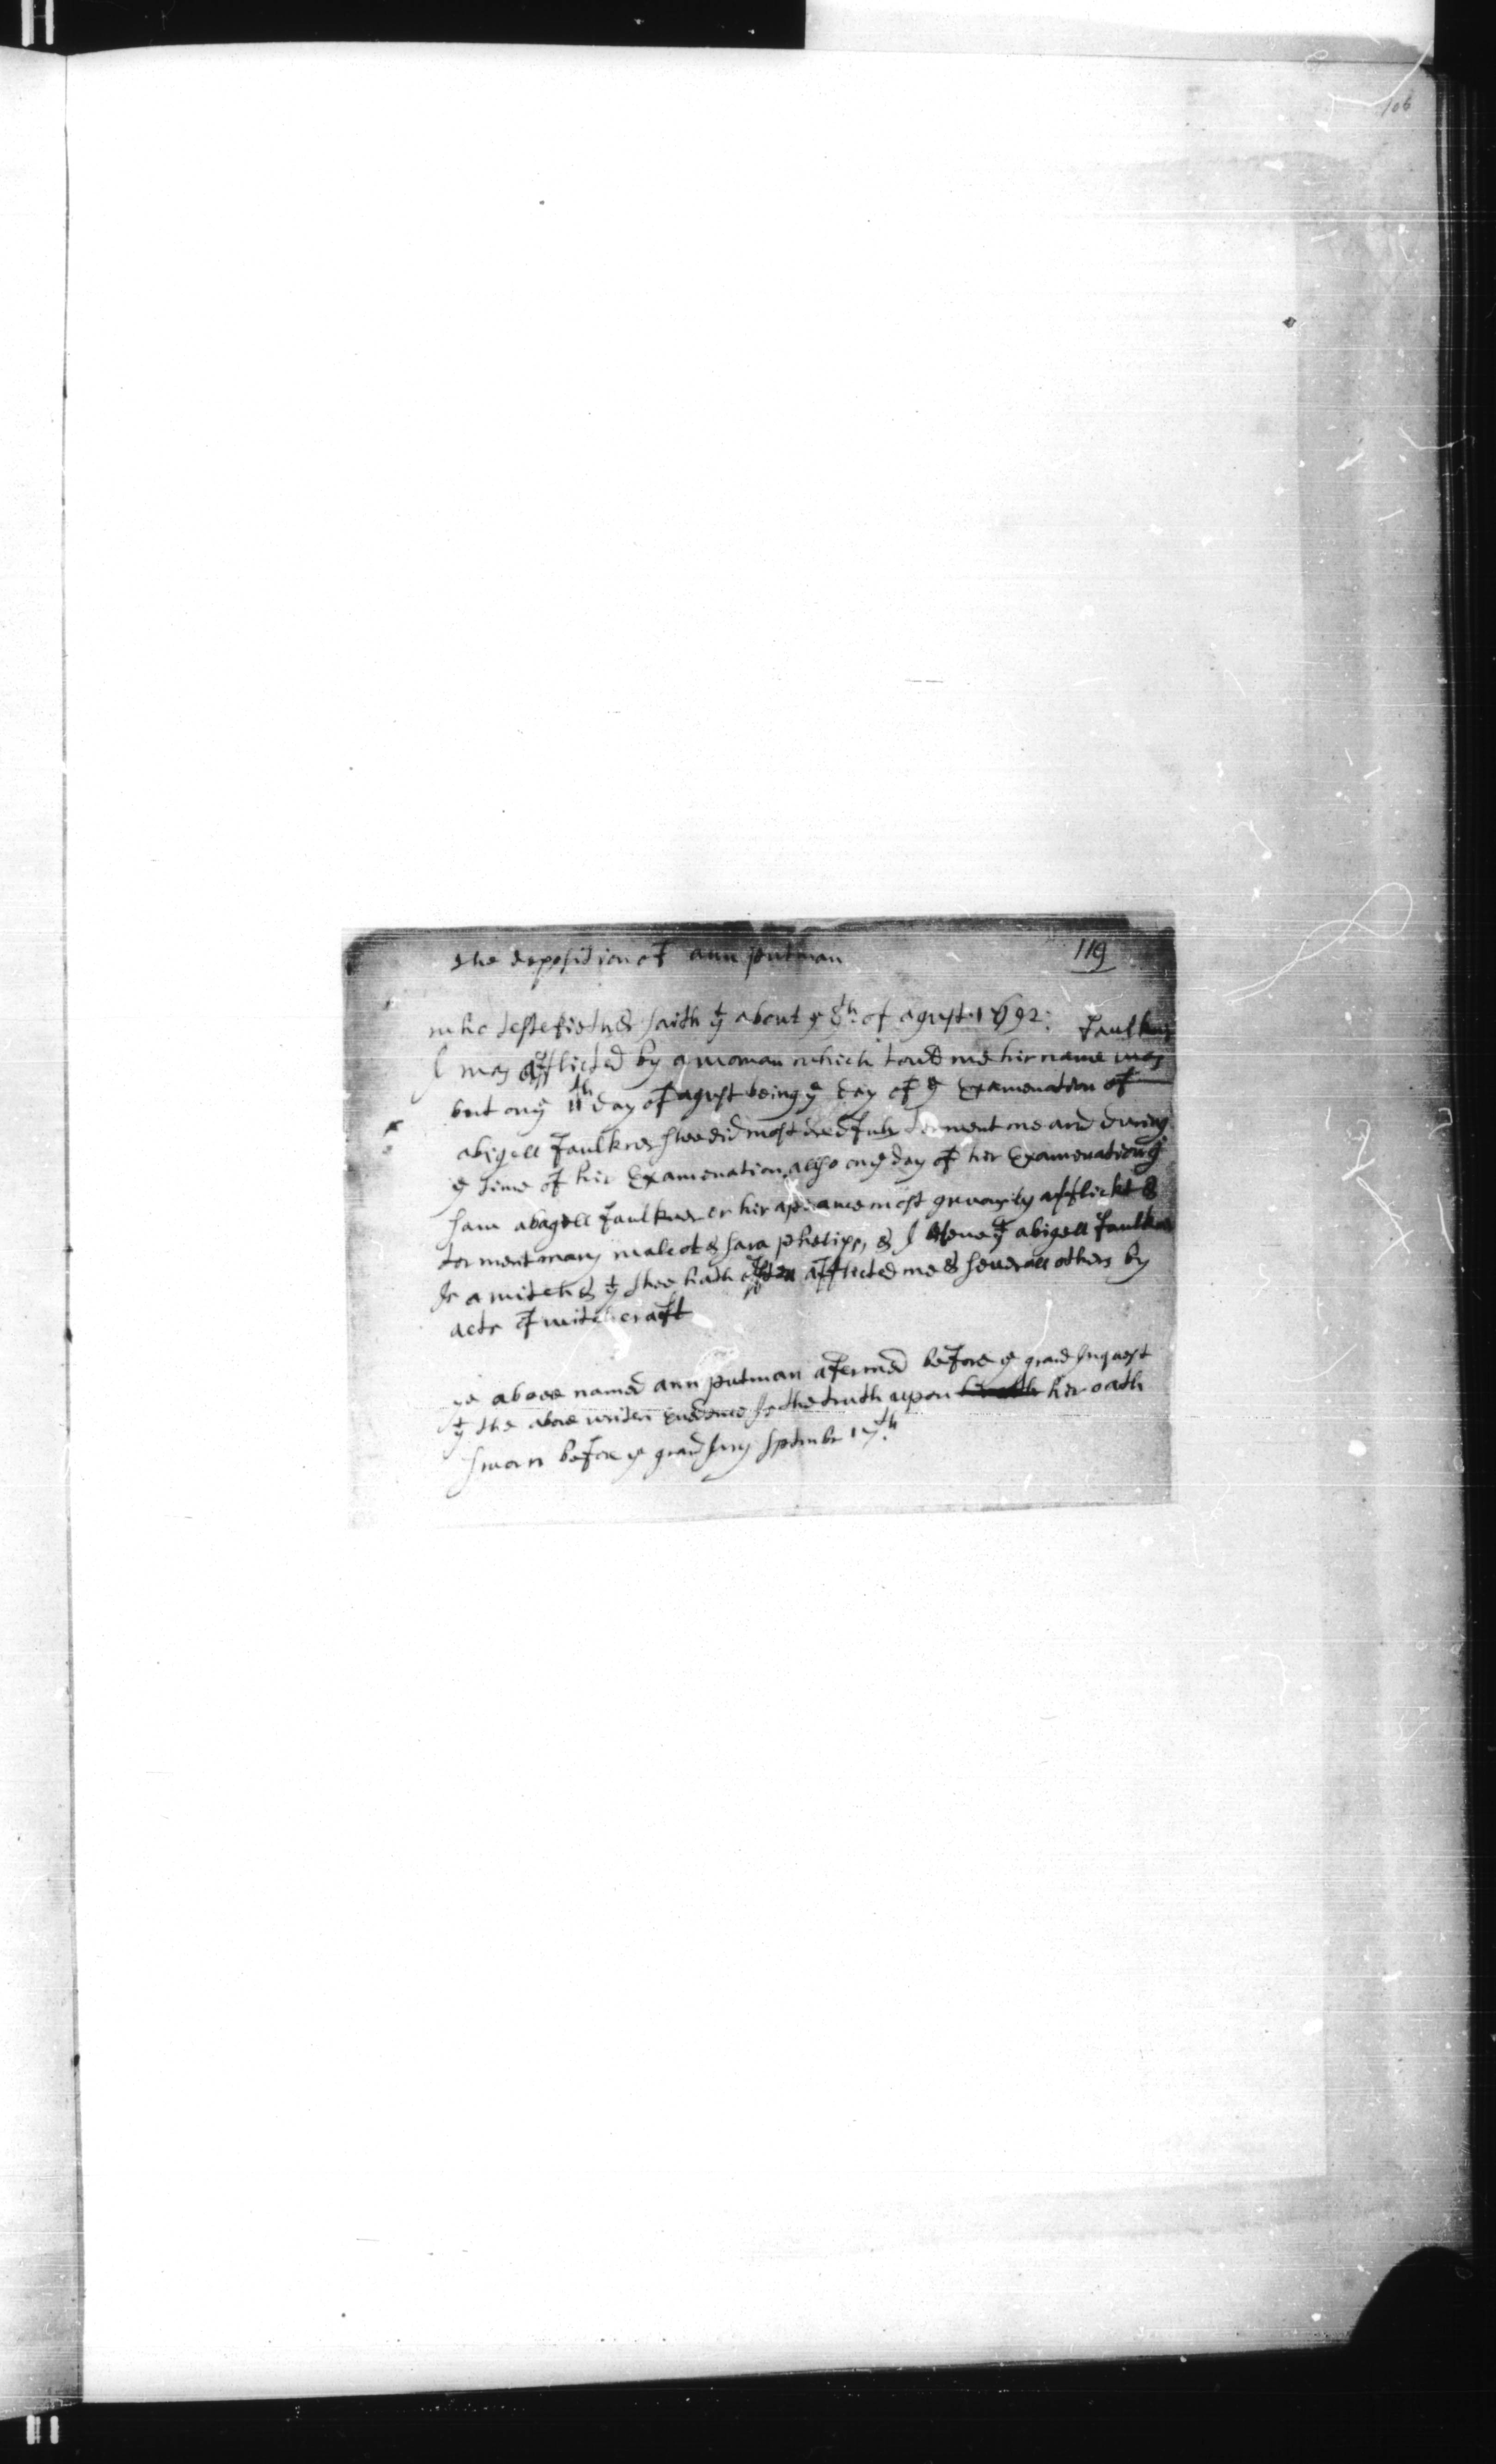 106
the deposition of ann putman 119
who testefieth & saith yt about ye 8th. of agust. 1692: Faulkner
I was afflicted by a woman which tould me hir name was
but on ye 11th day of agust being ye day of ye Examenation of
abigell Faulkner shee did most dredfuly torment me and during
ye time of hir Examenation, allso on ye day of hir Examenation I
saw abagell Faulkner or hir aperance most greuiously afflict &
torment mary walcot & sara phelips, & I beleue yt abigell Faulkner
Is a witch & yt shee hath often afflicted me & seuerall others by
acts of witchcraft
ye aboee named ann putman afermed before ye grand Inquest
yt the aboue writen euedence Is the truth upon hir oath
sworn before ye grand Jury septmbr 17.th